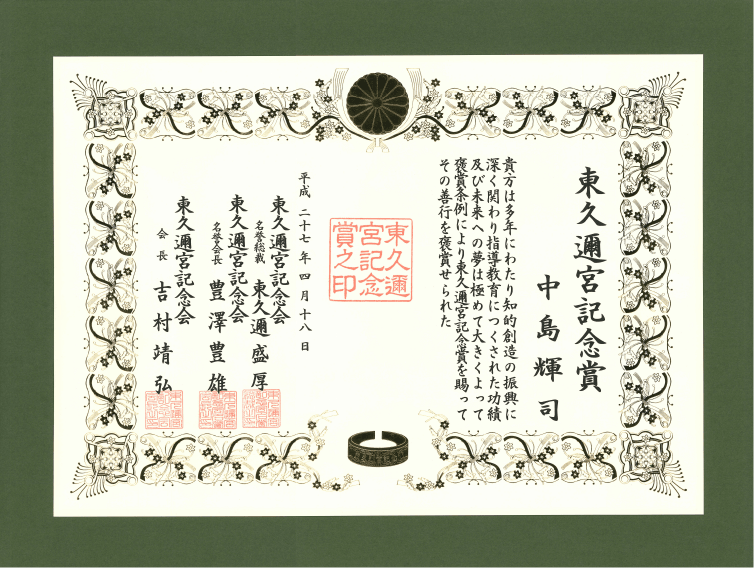 東久邇宮記念賞
中島輝司
貴方は多年にわたり知的創造の振興に
深く関わり指導教育につくされた功績
及び未来への夢は極めて大きくよって
褒賞条例により東久邇宮記念賞を賜って
その善行を褒賞せられた
東久邇
宮記念
賞之印
平成二十七年四月十八日
東久邇宮記念会
名誉総裁 東久邇盛厚
東久邇宮記念会
名誉会長 豊澤豊雄
東久邇宮記念会
会長 吉村靖弘